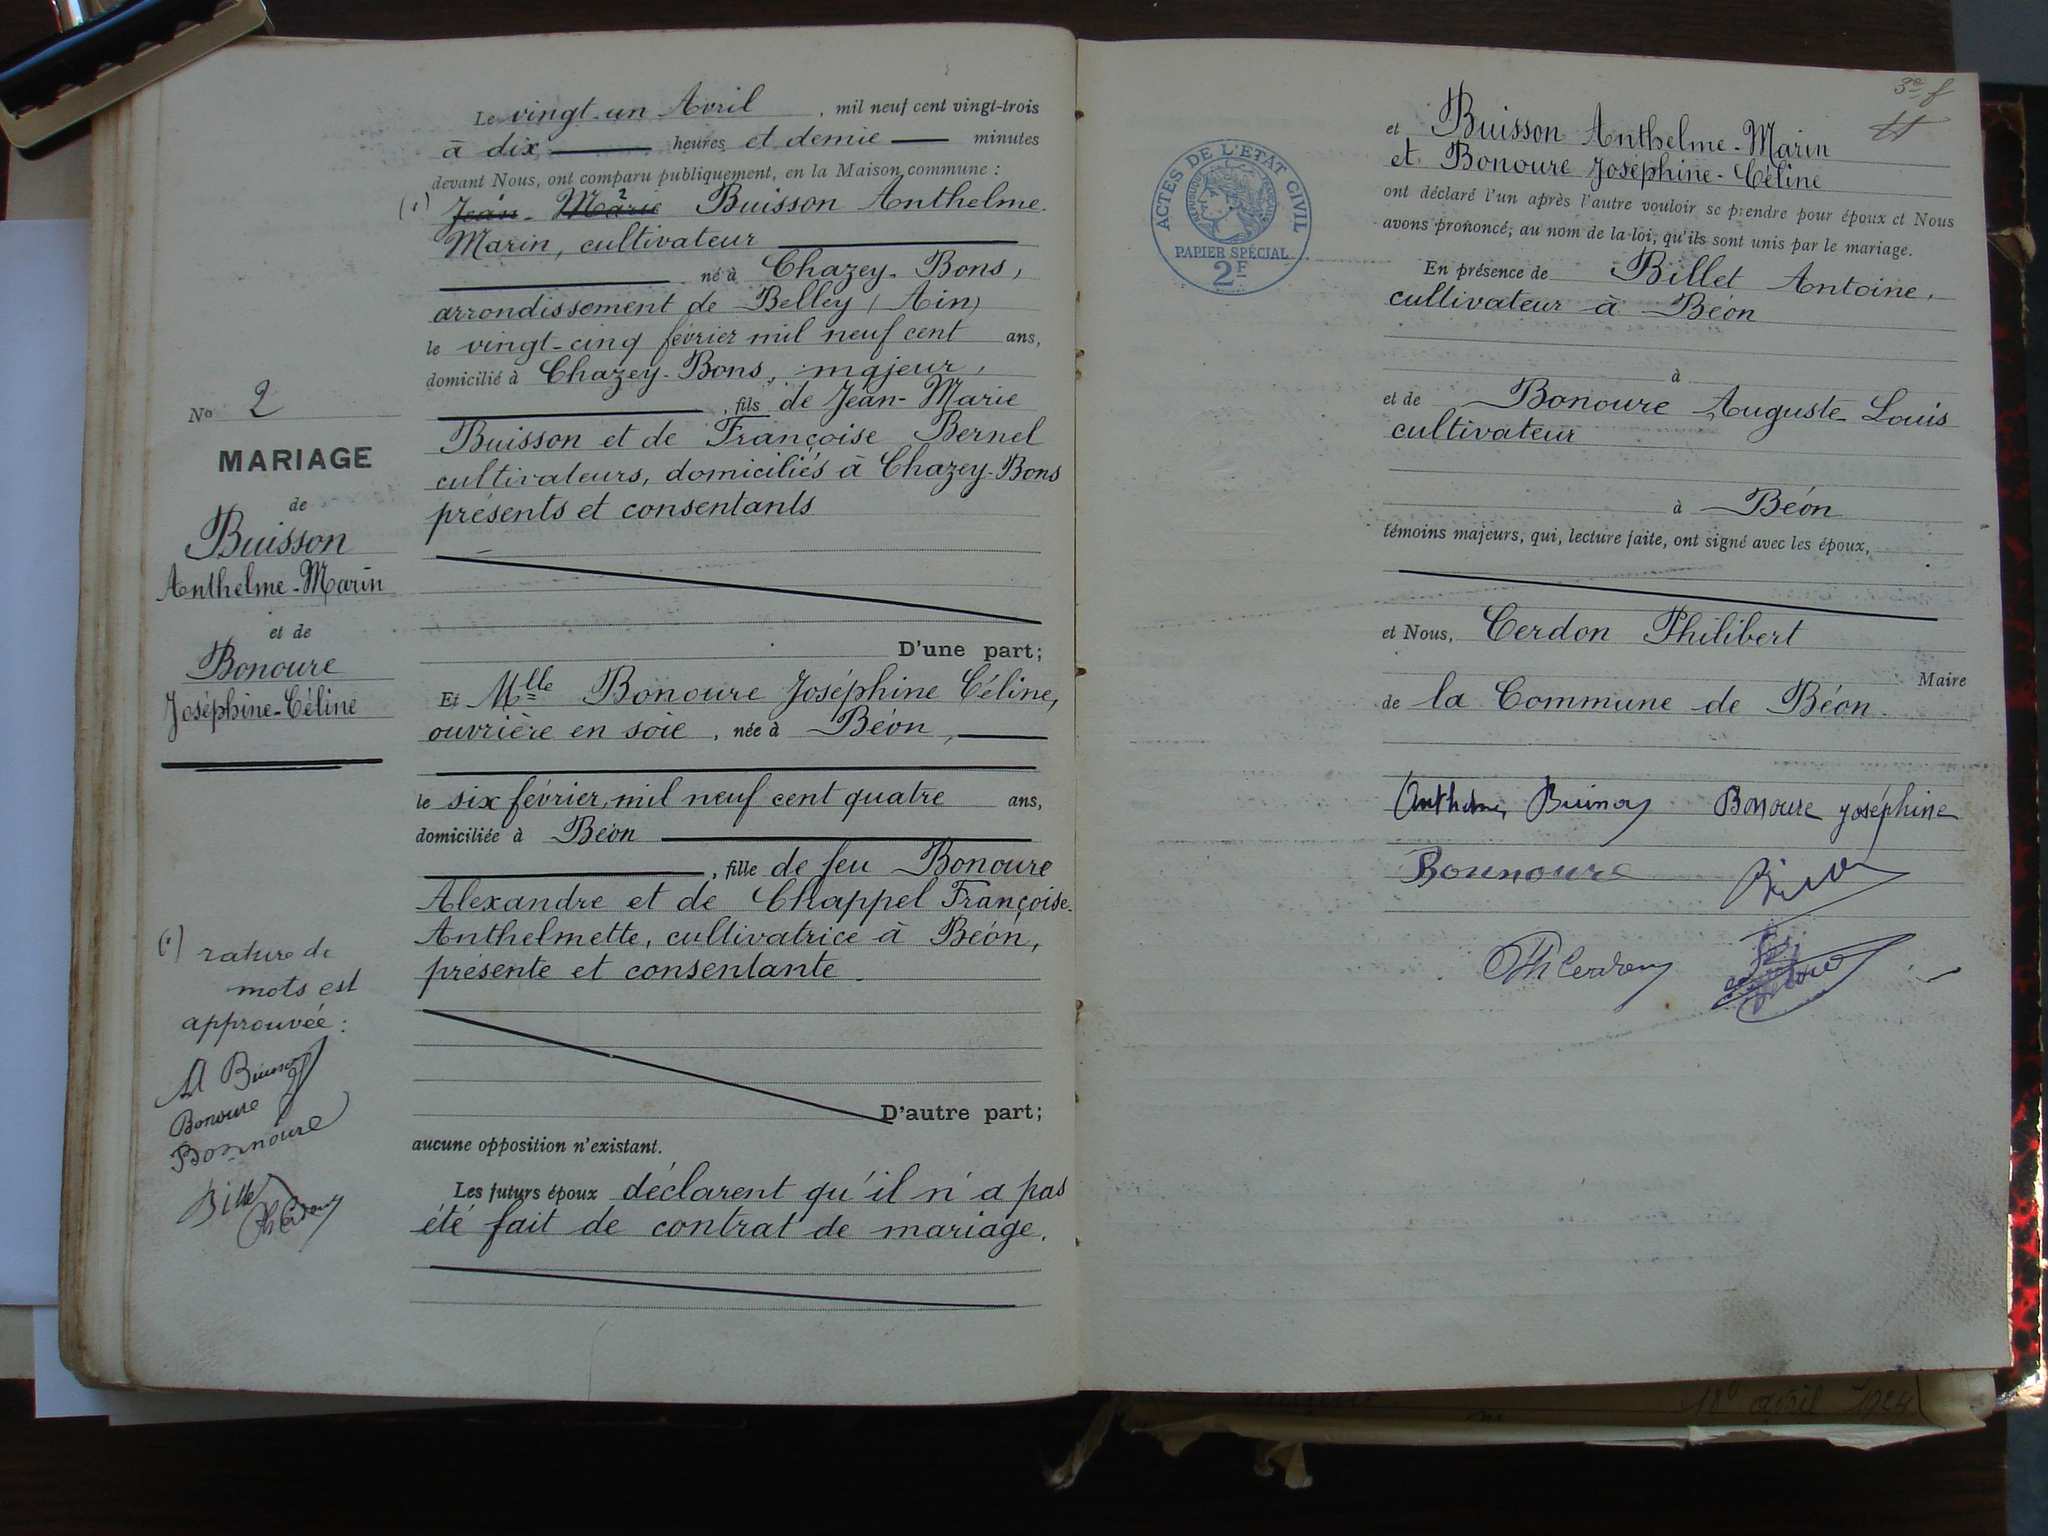 Le vingt-un Avril, mil neuf cent vingt-trois
à dix heures et demie minutes
devant Nous, ont comparu publiquement, en la Maison commune :
(1) Jean-Marie Buisson Anthelme
Marin, cultivateur
né à Chazey-Bons,
arrondissement de Belley (Ain)
le vingt-cinq février mil neuf cent ans,
domicilié à Chazey-Bons, majeur,
, fils de Jean-Marie
Buisson et de Françoise Bernel
cultivateurs, domiciliés à Chazey-Bons
présents et consentants
D'une part;
Et Mlle Bonoure Joséphine Céline,
ouvrière en soie, née à Béon,
le six février, mil neuf cent quatre ans,
domiciliée à Béon
, fille de feu Bonoure
Alexandre et de Chappel Françoise-
Anthelmette, cultivatrice à Béon,
présente et consentante.
D'autre part;
aucune opposition n'existant.
Les futurs époux déclarent qu'il n'a pas
été fait de contrat de mariage.
No 2
MARIAGE
de
Buisson
Anthelme-Marin
et de
Bonoure
Joséphine-Céline
(1) rature de
2
mots est
approuvée :
Bonoure
Bonnoure
Billet
Ph Cerdon
3e f
et Buisson Anthelme-Marin
et Bonoure Joséphine-Céline
ont déclaré l'un après l'autre vouloir se prendre pour époux et Nous
avons prononcé, au nom de la loi, qu'ils sont unis par le mariage.
En présence de Billet Antoine,
cultivateur à Béon
à
et de Bonoure Auguste Louis
cultivateur
à Béon
témoins majeurs, qui, lecture faite, ont signé avec les époux,
et Nous, Cerdon Philibert
Maire
de la Commune de Béon.
Bonoure Joséphine
Bonnoure
Ph Cerdon
ACTES DE L'ETAT CIVIL
REPUBLIQUE FRANÇAISE
PAPIER SPÉCIAL
2F
18 avril 1924